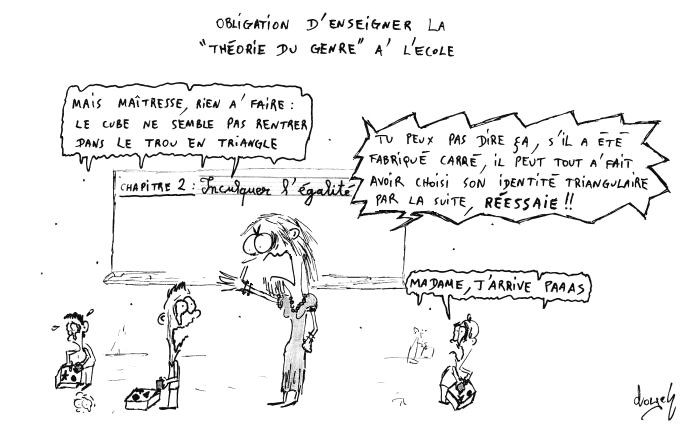 OBLIGATION D'ENSEIGNER LA
"THÉORIE DU GENRE" A' L'ECOLE
MAIS MAÎTRESSE, RIEN A' FAIRE :
LE CUBE NE SEMBLE PAS RENTRER
DANS LE TROU EN TRIANGLE
TU PEUX PAS DIRE ÇA, S'IL A ÉTÉ
FABRIQUÉ CARRÉ, IL PEUT TOUT A' FAIT
AVOIR CHOISI SON IDENTITÉ TRIANGULAIRE
PAR LA SUITE, RÉESSAIE !!
CHAPITRE 2 : Inculquer l'égalité
MADAME, J'ARRIVE PAAAS